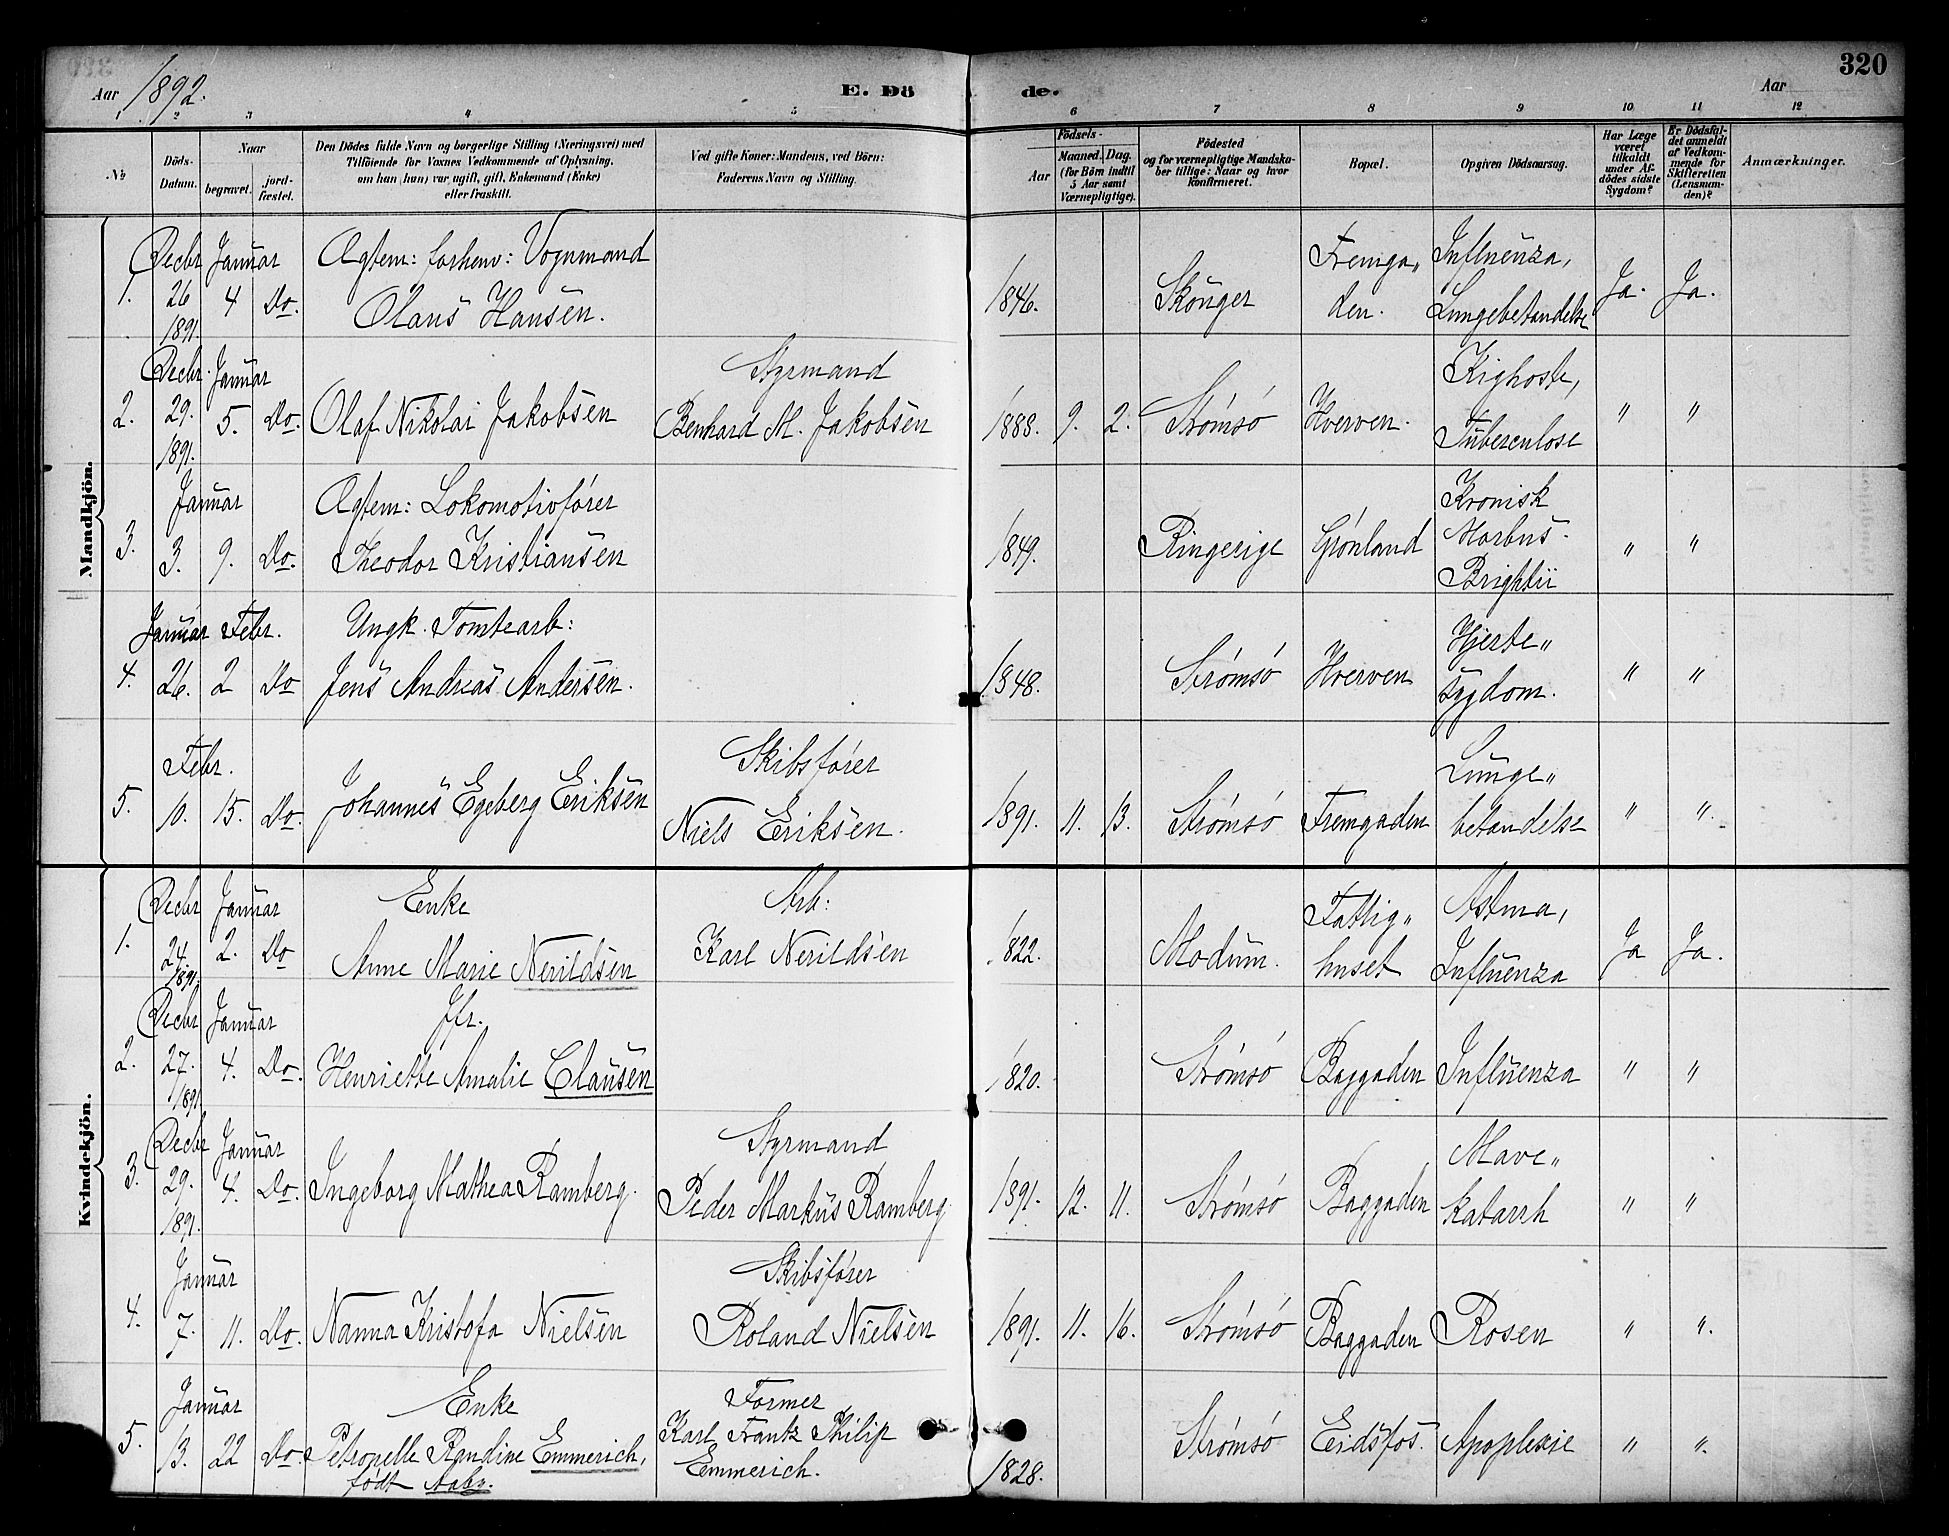 320
Aar 1892. E. Dö de. Aar
1 2 3 4 5 6 7 8 9 10 11 12
№ Döds-Datum. Naar begravet. jord-fæstet. Den Dödes fulde Navn og borgerlige Stilling (Næringsvei) med Tilföiende for Voxnes Vedkommende af Oplysning, om han (hun) var ugift, gift, Enkemand (Enke) eller fraskilt. Ved gifte Koner: Mandens, ved Börn: Faderens Navn og Stilling. Födsels- Aar Maaned. Dag. (for Börn indtil 5 Aar samt Værnepligtige). Födested og for værnepligtige Mandska-ber tillige: Naar og hvor konfirmeret. Bopæl. Opgiven Dödsaarsag. Har Læge været tilkaldt under Af-dödes sidste Sygdom? Er Dödsfal-det anmeldt af Vedkom-mende for Skifteretten (Lensman-den)? Anmærkninger.
Mandkjön.
1. Decbr 26 1891. Januar 4 Do. Ægtem: forhenv: Vognmand Olaus Hansen. 1846. Skouger Fremga„ den. Influenza, Lungebetandelse Ja. Ja.
2. Decbr. 29. 1891. Januar 5. Do. Olaf Nikolai Jakobsen Styrmand Benhard M. Jakobsen 1888. 9. 2. Strømsø Hverven. Kighoste, Tuberculose " "
3. Januar 3. 9. Do. Ægtem: Lokomotivfører Theodor Kristiansen 1849. Ringerige Grønland Kronisk Morbus- Brightii " "
4. Januar 26. Febr. 2 Do Ungk. Tomtearb: Jens Andreas Andersen. 1848. Strømsø Hverven Hjerte„ sygdom. " "
5. Febr. 10. 15. Do. Johannes Egeberg Eriksen Skibsfører Niels Eriksen. 1891. 11. 13. Strømsø Fremgaden Lunge„ betandelse " "
Kvindekjön.
1. Decbr 24. 1891. Januar 2. Do Enke Anne Marie Nerildsen Arb: Karl Nerildsen 1822. Modum. Fattig„ huset Astma, Influenza Ja Ja.
2. Decbr 27. 1891 Januar 4. Do. Jfr. Henriette Amalie Clausen 1820. Strømsø Baggaden Influenza " "
3. Decbr 29. 1891. Januar 4. Do. Ingeborg Mathea Ramberg. Styrmand Peder Markus Ramberg 1891. 12. 11. Strømsø Baggaden Mave„ katarrh " "
4. Januar 7. 11. Do. Nanna Kristofa Nielsen Skibsfører Roland Nielsen 1891. 11. 16. Strømsø Baggaden Rosen " "
5. Januar 13. 22 Do. Enke Petronelle Randine Emmerich, født Aaby. Former Karl Frantz Philip Emmerich. 1828. Strømsø Eidsfos. Apoplexie " "